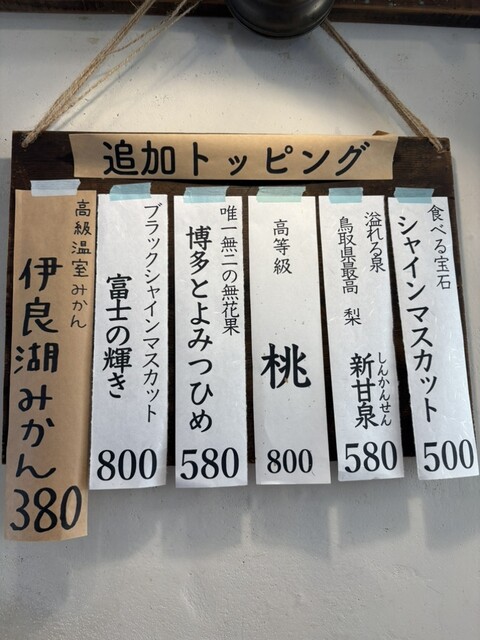 追加トッピング
食べる宝石
シャインマスカット
500
溢れる泉
鳥取県最高 梨
しんかんせん
新甘泉
580
高等級
桃
800
唯一無二の無花果
博多とよみつひめ
580
ブラックシャインマスカット
富士の輝き
800
高級温室みかん
伊良湖みかん
380